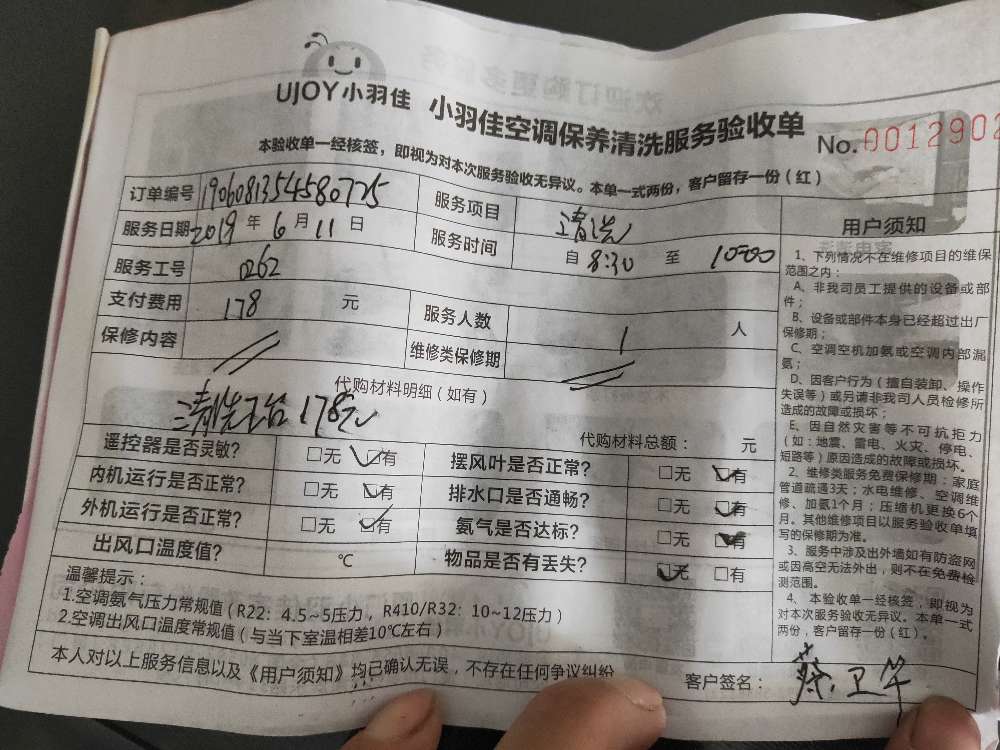 UJOY小羽佳 小羽佳空调保养清洗服务验收单 No.0012902
本验收单一经核签，即视为对本次服务验收无异议。本单一式两份，客户留存一份（红）
订单编号 19060813545807725 服务项目 清洗
服务日期 2019 年 6 月 11 日 服务时间 自 8:30 至 10:00
服务工号 0262
支付费用 178 元 服务人数 1 人
保修内容 维修类保修期
代购材料明细（如有）
清洗五台 178元
代购材料总额： 元
遥控器是否灵敏? □无 □有 摆风叶是否正常? □无 □有
内机运行是否正常? □无 □有 排水口是否通畅? □无 □有
外机运行是否正常? □无 □有 氨气是否达标? □无 □有
出风口温度值? ℃ 物品是否有丢失? □无 □有
温馨提示：
1.空调氨气压力常规值（R22：4.5~5压力，R410/R32：10~12压力）
2.空调出风口温度常规值（与当下室温相差10℃左右）
本人对以上服务信息以及《用户须知》均已确认无误，不存在任何争议纠纷
客户签名：
用户须知
1、下列情况不在维修项目的维保
范围之内：
A、非我司员工提供的设备或部
件；
B、设备或部件本身已经超过出厂
保修期；
C、空调空机加氨或空调内部漏
氨；
D、因客户行为（擅自装卸、操作
失误等）或另请非我司人员检修所
造成的故障或损坏；
E、因自然灾害等不可抗拒力
（如：地震、雷电、火灾、停电、
短路等）原因造成的故障或损坏。
2、维修类服务免费保修期：家庭
管道疏通3天；水电维修、空调维
修、加氨1个月；压缩机更换6个
月。其他维修项目以服务验收单填
写的保修期为准。
3、服务中涉及出外墙如有防盗网
或因高空无法外出，则不在免费检
测范围。
4、本验收单一经核签，即视为
对本次服务验收无异议。本单一式
两份，客户留存一份（红）。